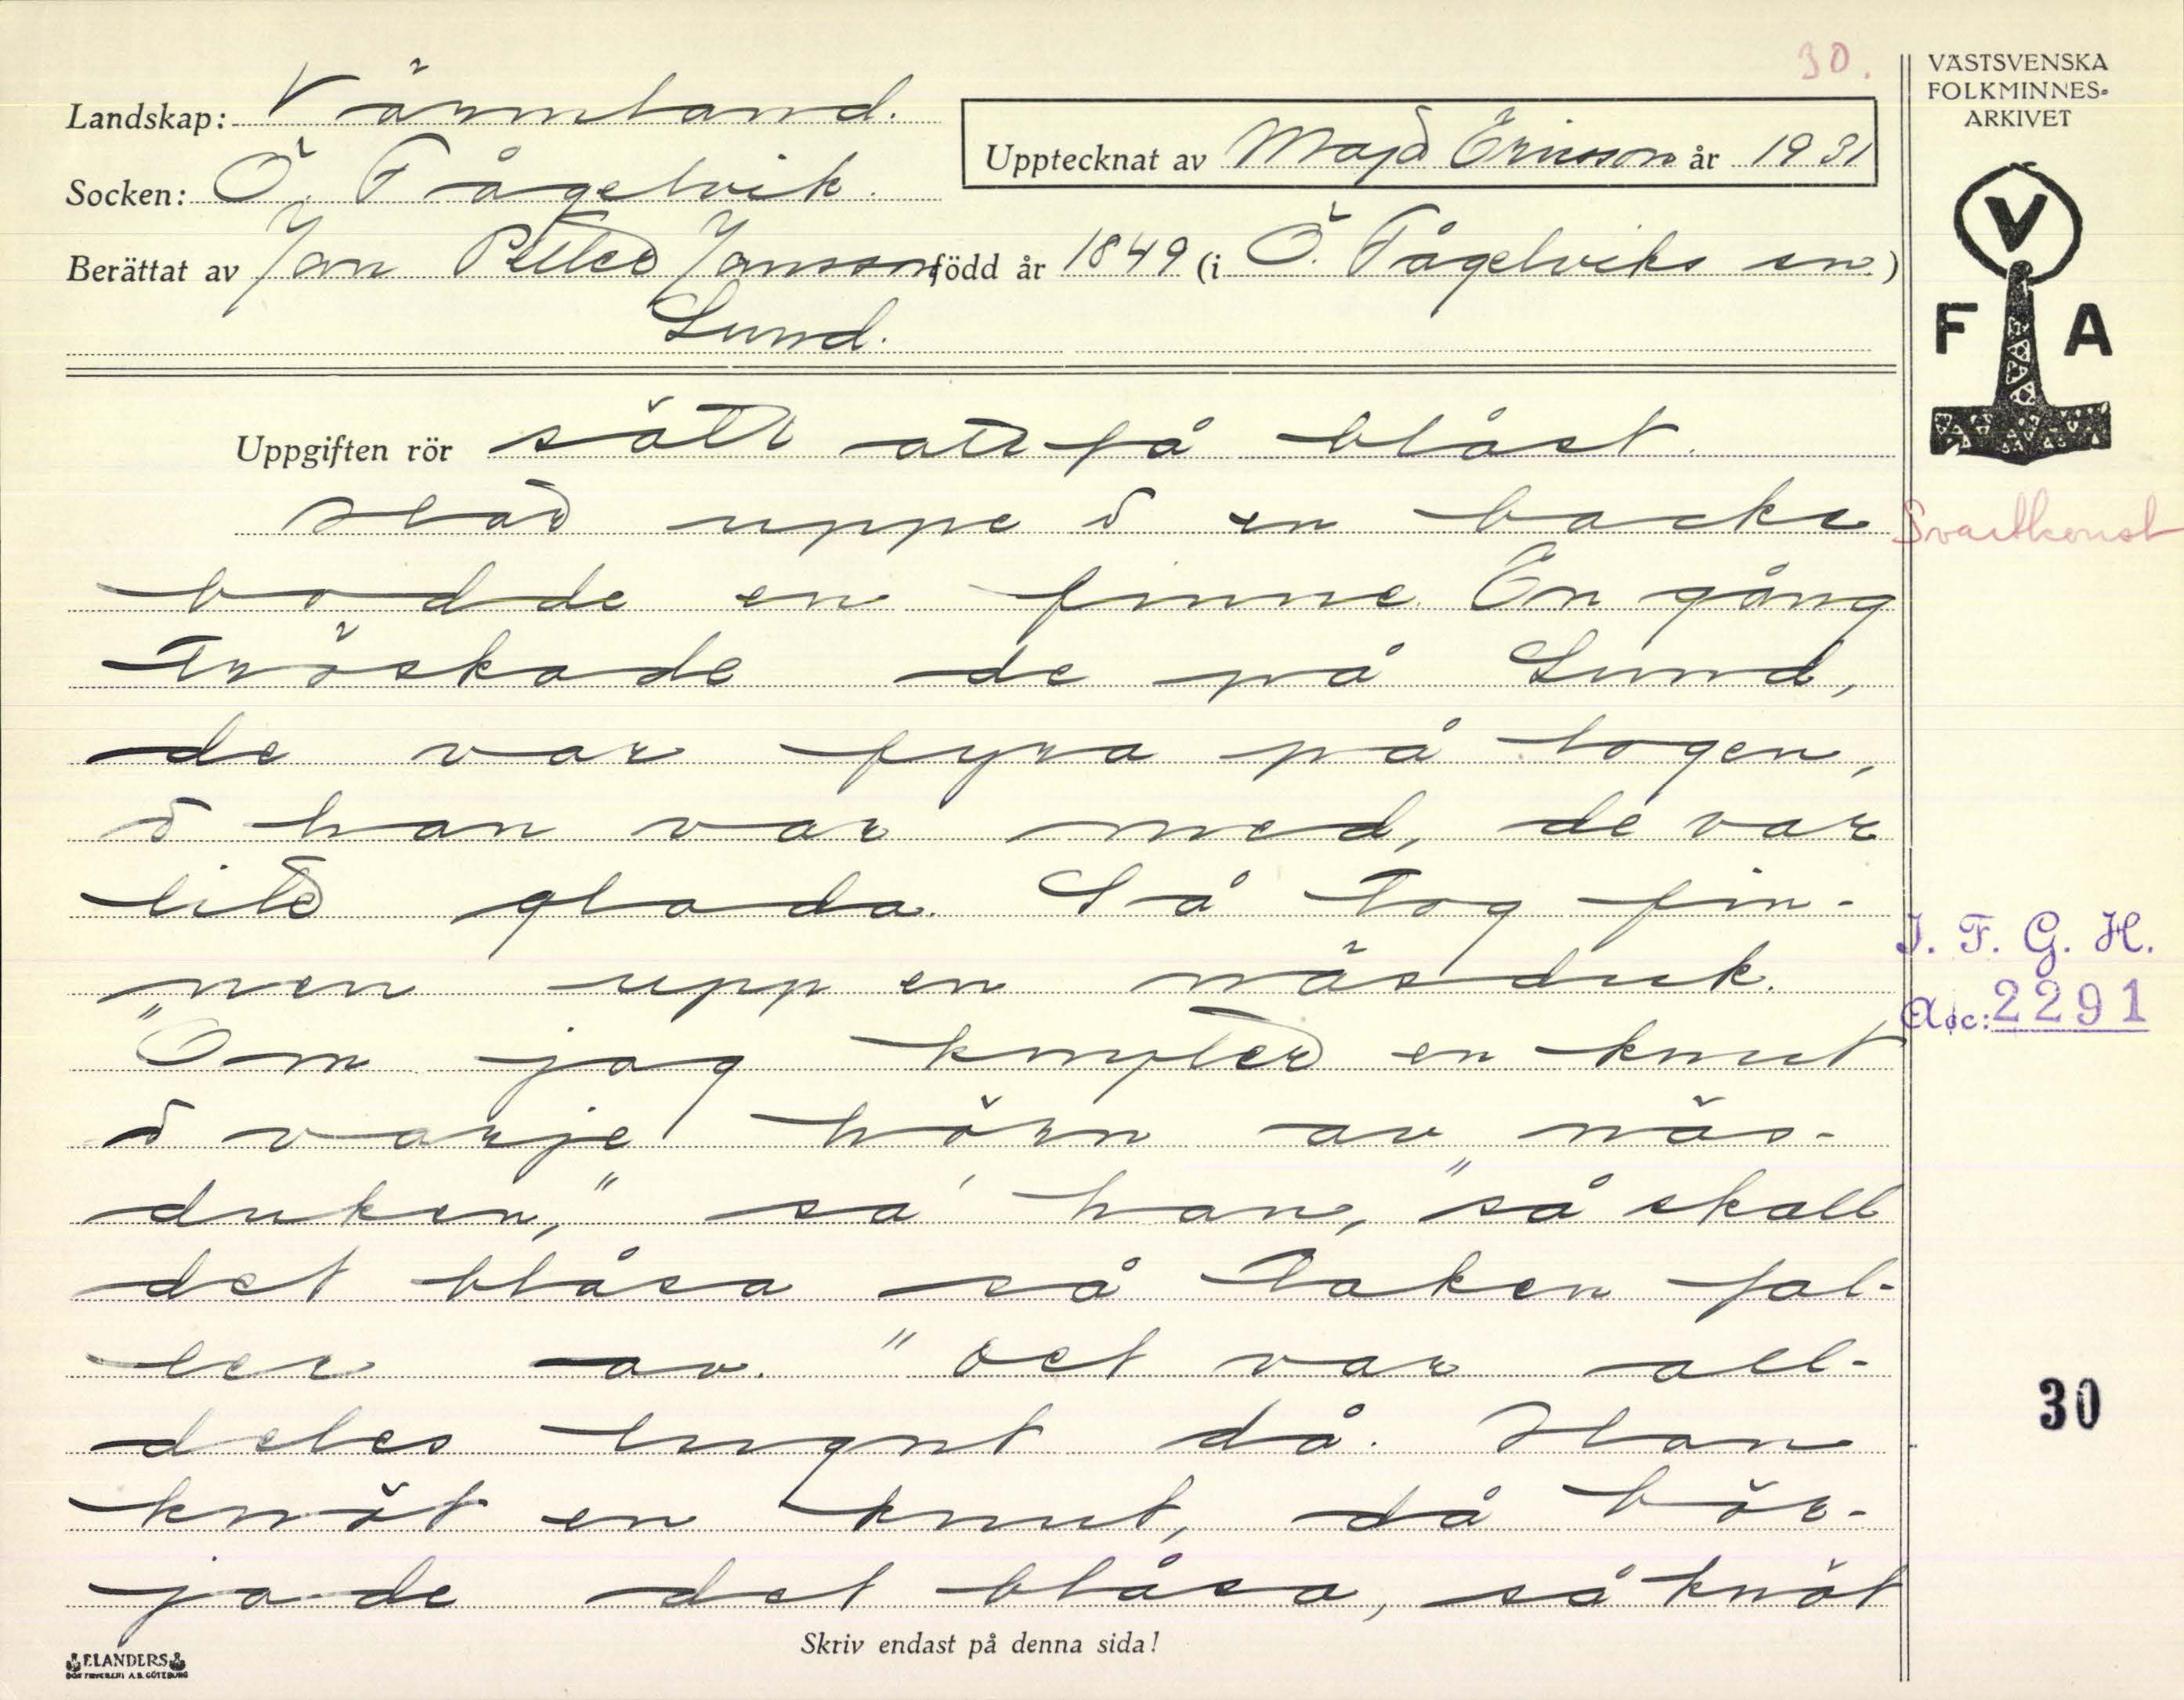 30.
VÄSTSVENSKA
FOLKMINNES-
ARKIVET
Landskap: Värmland.
Upptecknat av Majs Ericsson år 1931
Socken: Ö. Fågelvik.
Berättat av Jan Petter Jansson född år 1849 (i Ö. Fågelviks sn.)
Lund.
V
F A
Uppgiften rör sätt att få blåst.
Här uppe i en backe
Svartkonst
bodde en finne. En gång
tröskade de på Lund,
de var fyra på logen,
i han var med, de var
lite glada. Så tog fin-
I. F. G. H.
nen upp en näsduk.
Acc: 2291
"Om jag knyter en knut
i varje hörn av näs-
duken," sa' han, "så skall
det blåsa så taken fal-
ler av." Det var all-
30
deles lugnt då. Han
knöt en knut, då bör-
jade det blåsa, så knöt
Skriv endast på denna sida!
ELANDERS
BOKTRYCKERI A.B. GÖTEBORG